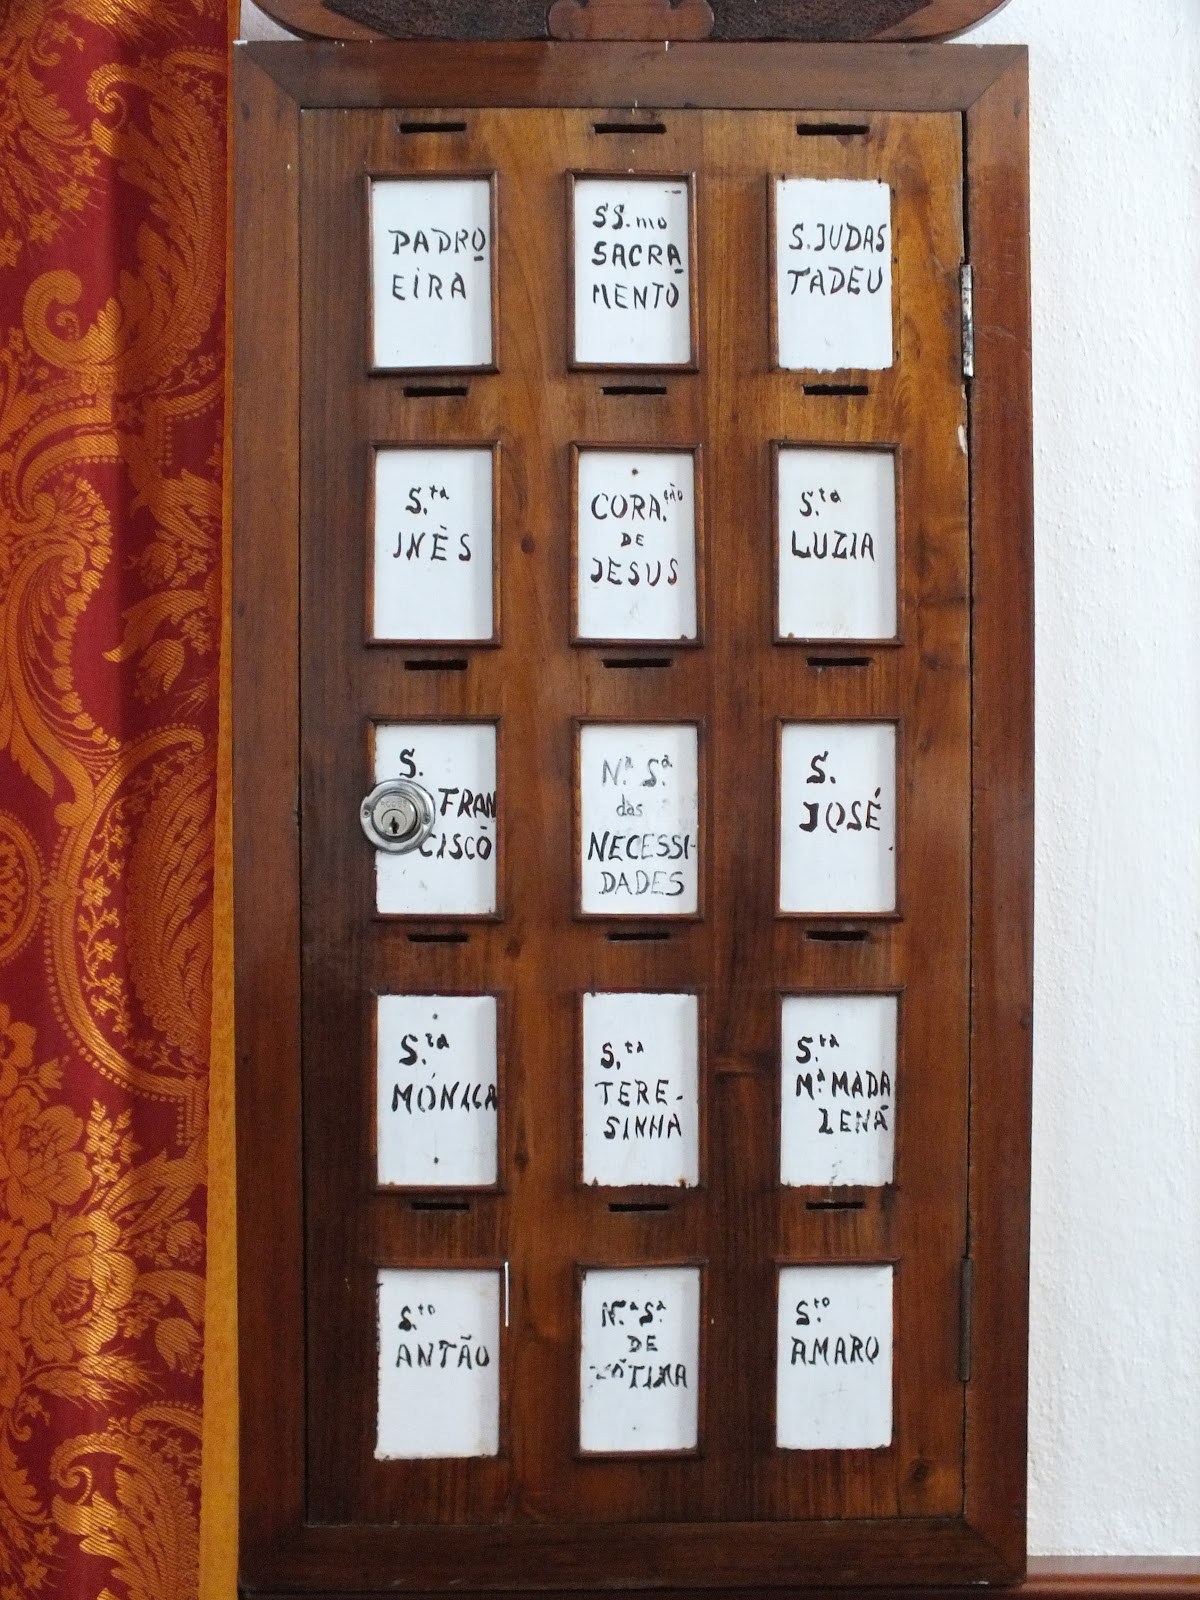 PADRO
EIRA
SS.mo
SACRA
MENTO
S. JUDAS
TADEU
S.ta
INÊS
CORA.ção
DE
JESUS
S.ta
LUZIA
S.
FRAN
CISCO
N.ª S.ª
das
NECESSI-
DADES
S.
JOSÉ
S.ta
MÓNICA
S.ta
TERE-
SINHA
S.ta
M.ª MADA
LENA
S.to
ANTÃO
N.ª S.ª
DE
S.to
AMARO